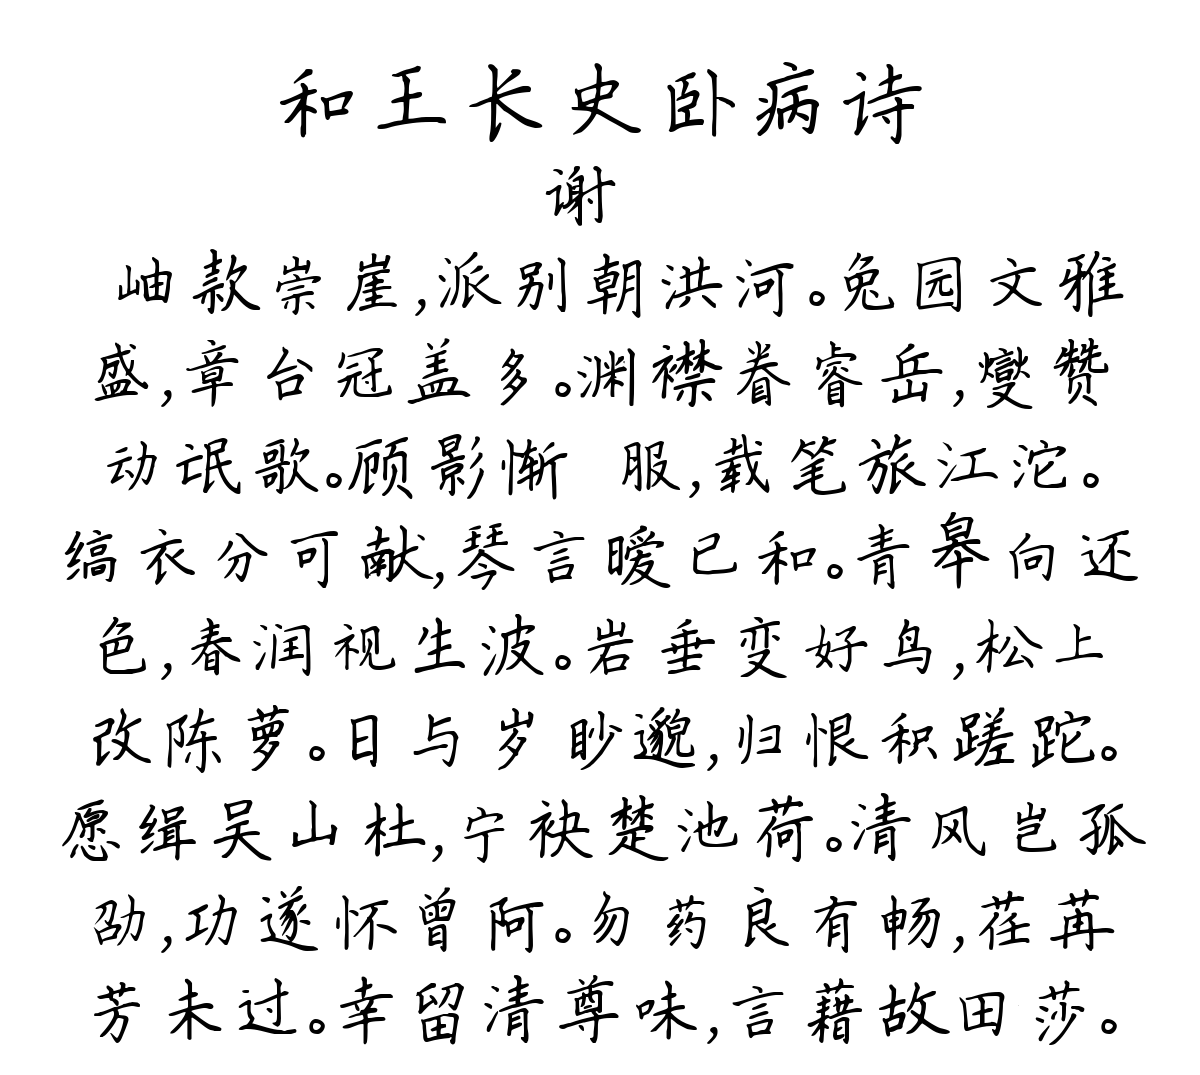 和王长史卧病诗
谢
岫款崇崖,派别朝洪河。兔园文雅
盛,章台冠盖多。渊襟眷睿岳,燮赞
动氓歌。顾影惭 服,载笔旅江沱。
缟衣分可献,琴言暧已和。青皋向还
色,春润视生波。岩垂变好鸟,松上
改陈萝。日与岁眇邈,归恨积蹉跎。
愿缉吴山杜,宁袂楚池荷。清风岂孤
劭,功遂怀曾阿。勿药良有畅,荏苒
芳未过。幸留清尊味,言藉故田莎。